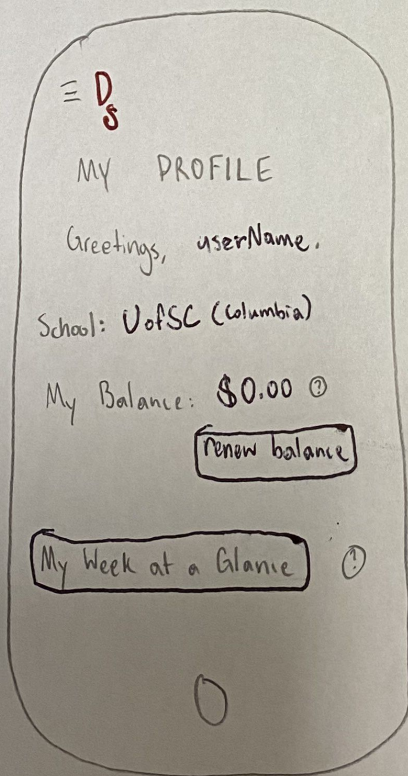 DS
MY PROFILE
Greetings, userName.
School: UofSC (Columbia)
My Balance: $0.00 ?
renew balance
My Week at a Glance !